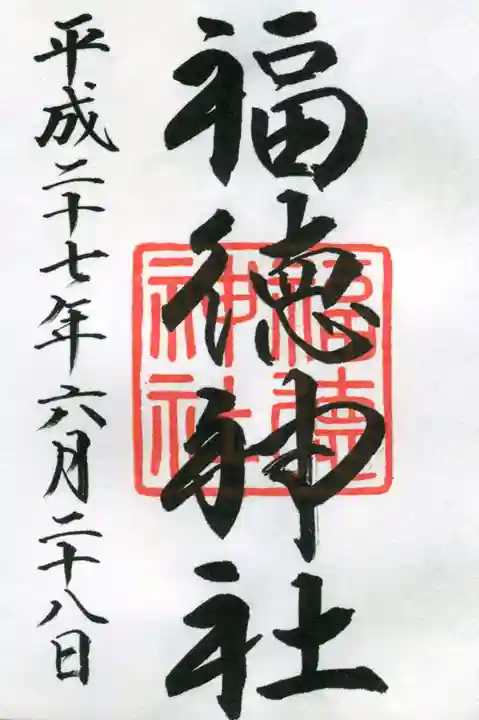 福徳神社
福徳神社
平成二十七年六月二十八日